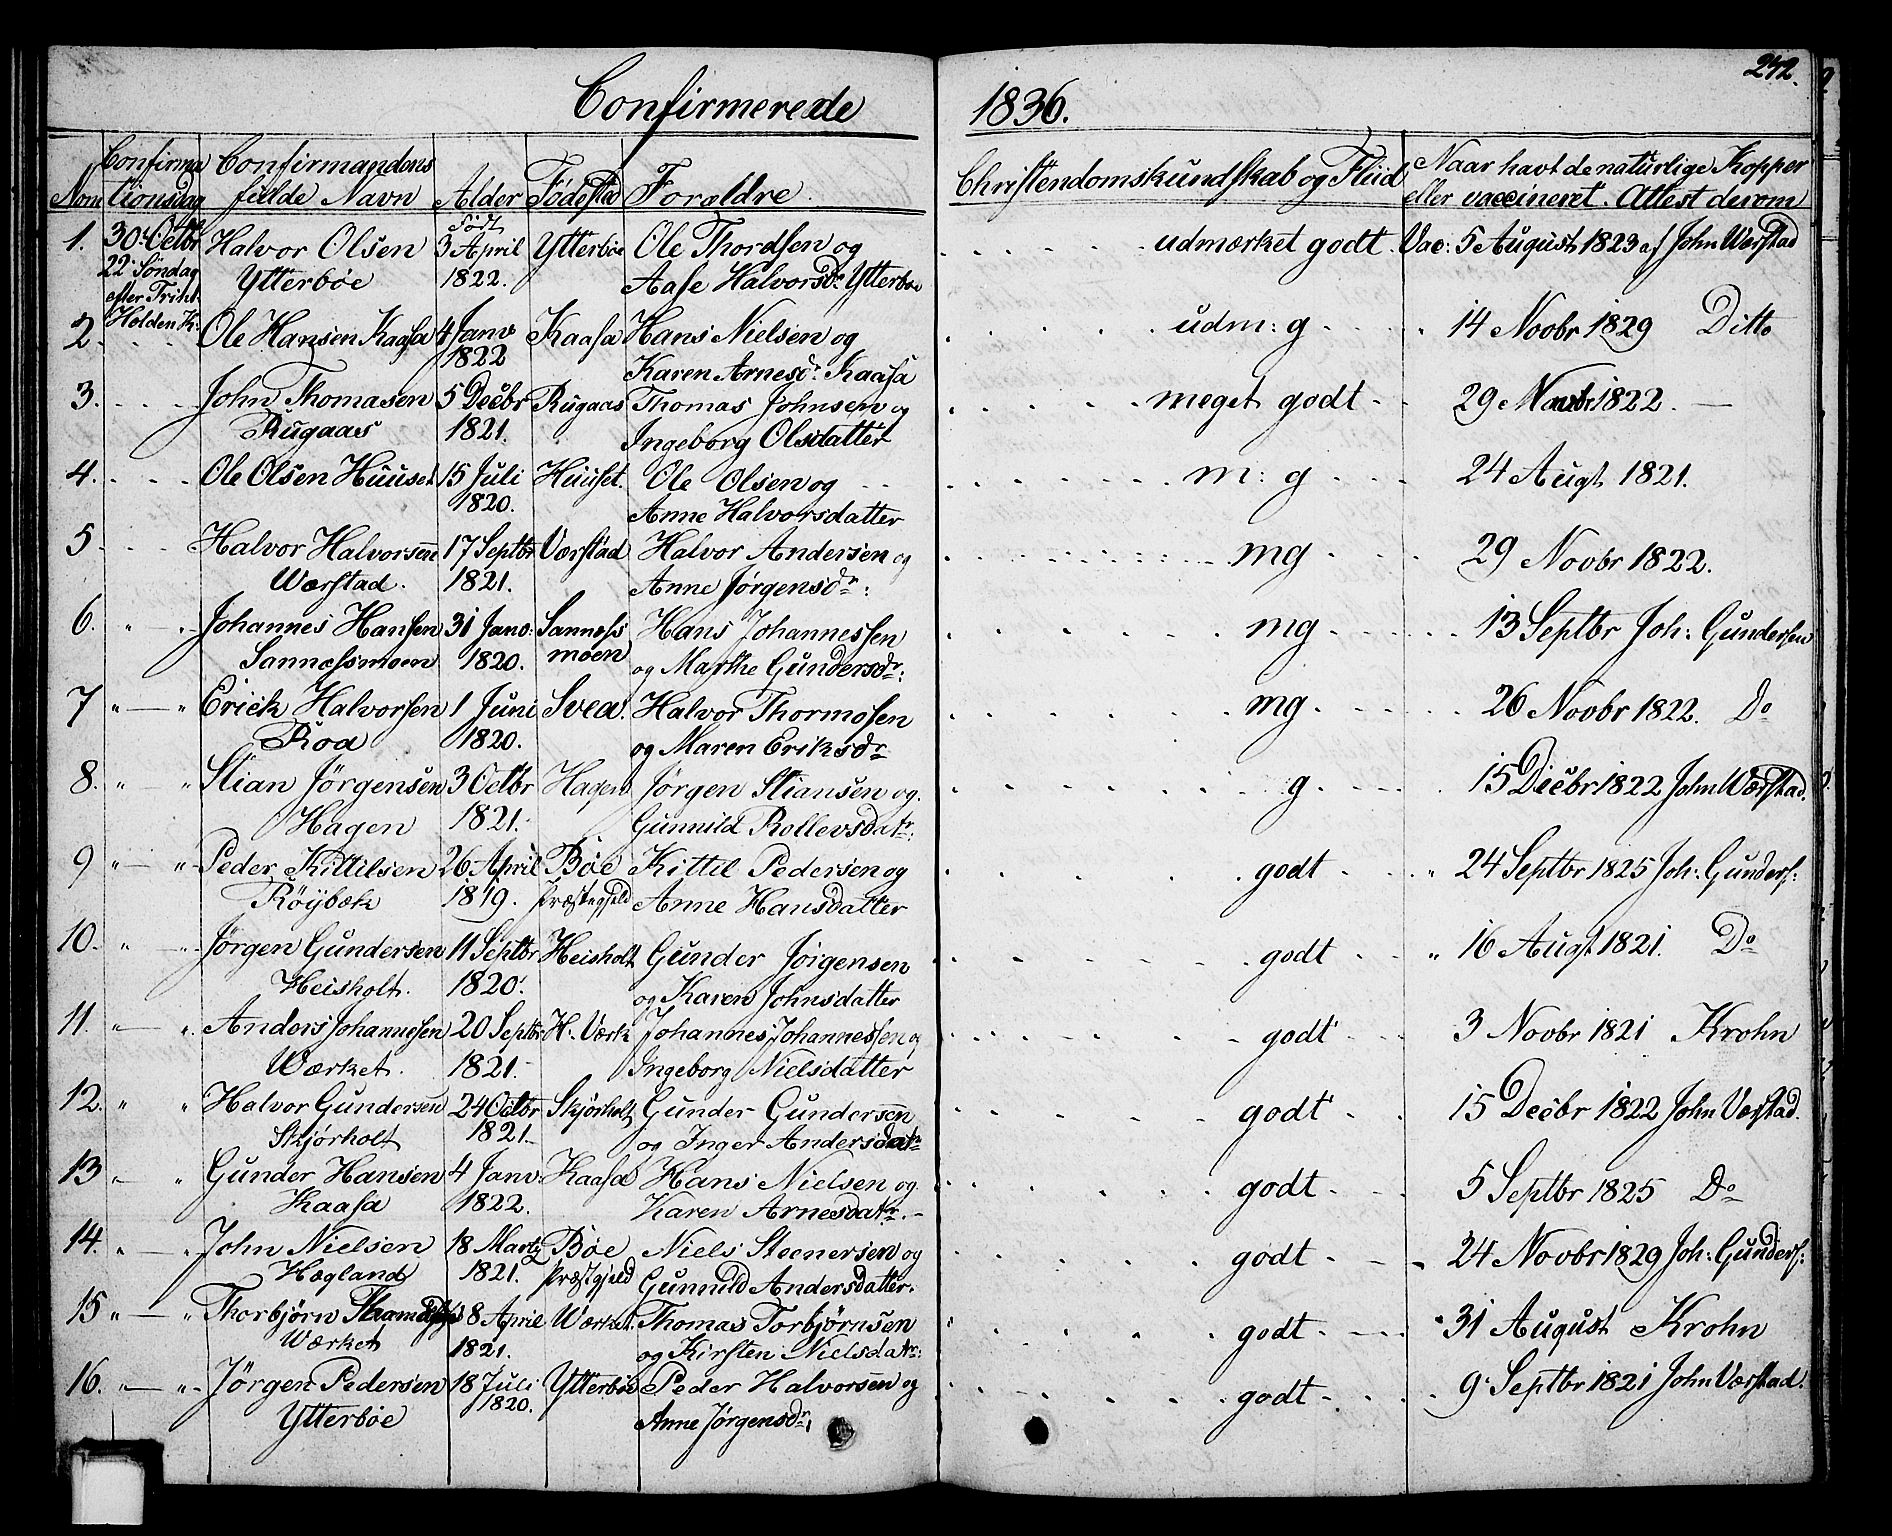 Confirmerede 1836. 242.
Nom Confirmationsdag Confirmandens fulde Navn Alder Fødested Forældre. Christendomskundskab og Fliid Naar havt de naturlige Kopper eller vaccineret. Attest derom
1. 30te Octbr Halvor Olsen Født 3 April Ytterbøe Ole Thordsen og udmærket godt. Vac: 5 August 1823 af John Værstad
22 Søndag efter Trinit. Holden K: Ytterbøe 1822. Aase Halvorsdr Ytterbøe
2. Ole Hansen Kaasa 4 Janv Kaasa Hans Nielsen og udm: g 14 Novbr 1829 Ditto
1822 Karen Arnesdr: Kaasa
3. John Thomasen 5 Decbr Rugaas Thomas Johnsen og meget godt 29 Novbr 1822. —
Rugaas 1821. Ingeborg Olsdatter
4. Ole Olsen Huuset 15 Juli Huuset. Ole Olsen og m: g 24 Augt 1821.
1820. Anne Halvorsdatter
5 Halvor Halvorsen 17 Septbr Værstad Halvor Andersen og mg 29 Novbr 1822.
Wærstad. 1821. Anne Jørgensdr:
6. " Johannes Hansen 31 Janv: Sannessmoen Hans Johannessen mg 13 Septbr Joh: Gundersen
Sannessmoen 1820. og Marthe Gundersdr:
7 " — " Erick Halvorsen 1 Juni Svea. Halvor Thormosen mg 26 Novbr 1822. Do
Roa 1820. og Maren Eriksdr
8. " — " Stian Jørgensen 3 Octbr Hagen Jørgen Stiansen og g 15 Decbr 1822 John Wærstad.
Hagen 1821. Gunnild Rollevsdatr:
9 " — " Peder Kittilsen 26 April Bøe Kittil Pedersen og godt " 24 Septbr 1825 Joh: Gunders:
Røybæk 1819. Præstegjeld Anne Hansdatter
10. " — " Jørgen Gundersen 11 Septbr Heisholt Gunder Jørgensen godt " 16 Augt 1821. Do
Heisholt. 1820. og Karen Johnsdatter
11. " — " Anders Johannesen 20 Septbr H. Værk Johannes Johannessen og godt 3 Novbr 1821 Krohn
Wærket. 1821. Ingeborg Nielsdatter
12. " " Halvor Gundersen 24 Octbr Skjørholt Gunder Gundersen godt 15 Decbr 1822 John Værstad.
Skjørholt 1821. og Inger Andersdatr
13 " — " Gunder Hansen 4 Janv. Kaasa Hans Nielsen og godt 5 Septbr 1825 Do
Kaasa 1822. Karen Arnesdatr.
14. " — " John Nielsen 18 Marty Bøe Niels Steenersen og godt 24 Novbr 1829 Joh: Gunders:
Hægland 1821. Præstgjeld Gunnild Andersdatter.
15 " — " Thorbjørn 8 April Wærket. Thomas Torbjørnsen godt 31 August Krohn
Wærket 1821. og Kirsten Nielsdatr:
16. " — " Jørgen Pedersen 18 Juli Ytterbøe Peder Halvorsen og godt 9 Septbr 1821 John Værstad.
Ytterbøe 1820. Anne Jørgensdr: